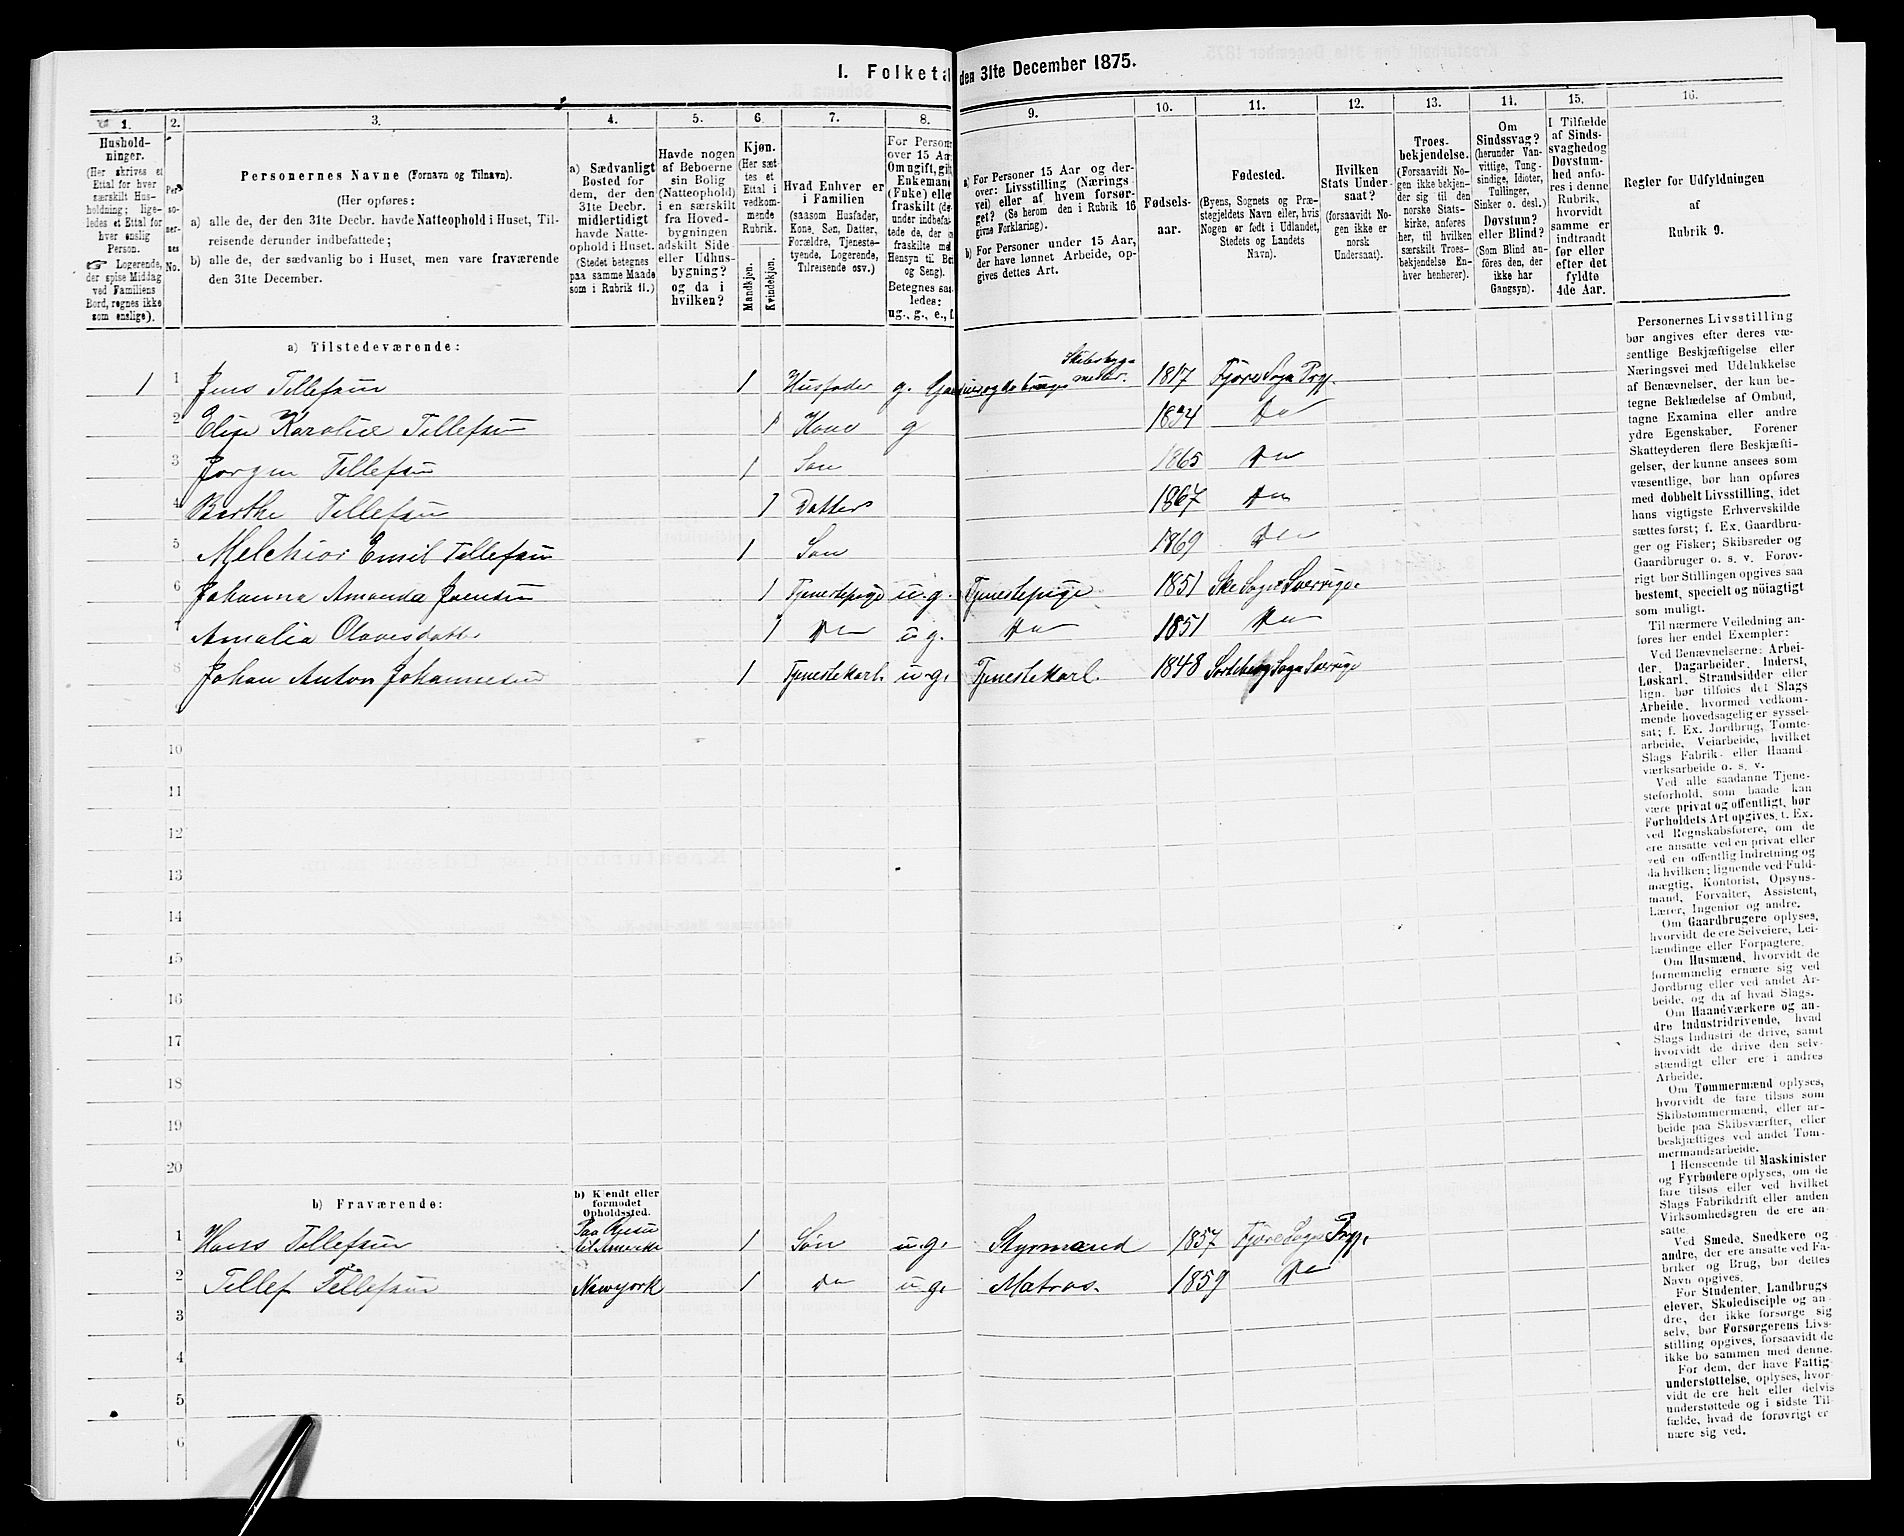 I. Folketa den 31te December 1875.
1. 2. 3. 4. 5. 6. 7. 8. 9. 10. 11. 12. 13. 14. 15. 16.
Hushold-
ninger.
(Her skrives et
Ettal for hver
særskilt Hus-
holdning; lige-
ledes et Ettal for
hver enslig
Person.
☞ Logerende,
der spise Middag
ved Familiens
Bord, regnes ikke
som enslige).
Per
so-
ner-
nes
No.
Personernes Navne (Fornavn og Tilnavn).
(Her opføres:
a) alle de, der den 31te Decbr. havde Natteophold i Huset, Til-
reisende derunder indbefattede;
b) alle de, der sædvanlig bo i Huset, men vare fraværende
den 31te December.
a) Sædvanligt
Bosted for
dem, der den
31te Decbr.
midlertidigt
havde Natte-
ophold i Huset.
(Stedet betegnes
paa samme Maade
som i Rubrik 11.)
Havde nogen
af Beboerne
sin Bolig
(Natteophold)
i en særskilt
fra Hoved-
bygningen
adskilt Side-
eller Udhus-
bygning?
og da i
hvilken?
Kjøn.
(Her sæt
tes et
Ettal i
vedkom-
mende
Rubrik.
Mandkjøn.
Kvindekjøn.
Hvad Enhver er
i Familien
(saasom Husfader,
Kone, Søn, Datter,
Forældre, Tjeneste-
tyende, Logerende,
Tilreisende osv.)
For Person
over 15 Aa
Om ugift, gif
Enkemand
(Fuke) elle
fraskilt (de
under indbefat-
tede de, der
fraskilte m
Hensyn til Bo
og Seng).
Betegnes saa
ledes:
ug., g., e., f.
a) For Personer 15 Aar og der-
over: Livsstilling (Nærings-
vei) eller af hvem forsør-
get? (Se herom den i Rubrik 16
givne Forklaring).
b) For Personer under 15 Aar,
der have lønnet Arbeide, op-
gives dettes Art.
Fødsels-
aar.
Fødested.
(Byens, Sognets og Præ-
stegjeldets Navn eller, hvis
Nogen er født i Udlandet,
Stedets og Landets
Navn).
Hvilken
Stats Under-
saat?
(forsaavidt No-
gen ikke er
norsk
Undersaat).
Troes-
bekjendelse.
(Forsaavidt No-
gen ikke bekjen-
der sig til den
norske Stats-
kirke, anføres
her, til hvilken
særskilt Troes-
bekjendelse En-
hver henhører).
Om
Sindssvag?
(herunder Van-
vittige, Tung-
sindige, Idioter,
Tullinger,
Sinker o. desl.)
Døvstum?
eller Blind?
(Som Blind an-
føres den, der
ikke har
Gangsyn).
I Tilfælde
af Sinds-
svaghed og
Døvstum-
hed anfø-
res i denne
Rubrik,
hvorvidt
samme er
indtraadt
før eller
efter det
fyldte
4de Aar.
Regler for Udfyldningen
af
Rubrik 9.
a) Tilstedeværende:
1 1 Jens Tellefsen 1 Husfader g. Gaardbruger Skibsbyg-mester. 1817 Fjøre Sogn Prgj.
2 Elise Karoline Tellefsen 1 Kone g 1834 Do
3 Jørgen Tellefsen 1 Søn 1865 Do
4 Berthe Tellefsen 1 Datter 1867 Do
5 Melchior Emil Tellefsen 1 Søn 1869 Do
6 Johanna Amanda Jensen 1 Tjenestepige u.g. Tjenestepige 1851 Ske Sogn Sverrige
7 Amalia Olavesdatter 1 Do u g. Do 1851 Do
8 Johan Anton Johannesen 1 Tjenestekarl. u.g. Tjenestekarl. 1848 Sogn Sverrige
9
10
11
12
13
14
15
16
17
18
19
20
b) Fraværende:
b) Kjendt eller
formodet
Opholdssted.
1 Hans Tellefsen Paa Reisen til Amerika 1 Søn u.g. Styrmand 1857 Fjøre Sogn Prgj.
2 Tellef Tellefsen Newyork 1 Do u g. Matros. 1859 Do
3
4
5
6
Personernes Livsstilling
bør angives efter deres væ-
sentlige Beskjæftigelse eller
Næringsvei med Udelukkelse
af Benævnelser, der kun be-
tegne Beklædelse af Ombud,
tagne Examina eller andre
ydre Egenskaber. Forener
Skatteyderen flere Beskjæfti-
gelser, der kunne ansees som
væsentlige, bør han opføres
med dobbelt Livsstilling, idet
hans vigtigste Erhvervskilde
sættes først; f. Ex. Gaardbru-
ger og Fisker; Skibsreder og
Gaardbruger o. s. v. Forøv-
rigt bør Stillingen opgives saa
bestemt, specielt og nöiagtigt
som muligt.
Til nærmere Veiledning an-
føres her endel Exempler:
Ved Benævnelserne: Arbei-
der, Dagarbeider, Inderst,
Løskarl, Strandsidder eller
lign. bør tilføies det Slags
Arbeide, hvormed vedkom-
mende hovedsagelig er syssel-
sat; f. Ex. Jordbrug, Tomte-
arbeide, Veiarbeide, hvilket
Slags Fabrik- eller Haand-
værksarbeide o. s. v.
Ved alle saadanne Tjene-
steforhold, som baade kan
være privat og offentligt, bør
Forholdets Art opgives, t. Ex.
ved Regnskabsførere, om de
ere ansatte ved en privat eller
ved en offentlig Indretning og
da hvilken; lignende ved Fuld-
mægtig, Kontorist, Opsyns-
mand, Forvalter, Assistent,
Lærer, Ingeniør og andre.
Om Gaardbrugere oplyses,
hvorvidt de ere Selveiere, Lei-
lændinge eller Forpagtere.
Om Husmænd, hvorvidt de
fornemmelig ernære sig ved
Jordbrug eller ved andet Ar-
beide, og da af hvad Slags.
Om Haandværkere og an-
dre Industridrivende, hvad
Slags Industri de drive, samt
hvorvidt de drive den selv-
stændigt eller ere i andres
Arbeide.
Om Tømmermænd oplyses,
hvorvidt de fare tilsøs som
Skibstømmermænd, eller ar-
beide paa Skibsværfter, eller
beskjæftiges ved andet Tøm-
mermandsarbeide.
I Henseende til Maskinister
og Fyrbødere oplyses, om de
fare tilsøs eller ved hvilket
Slags Fabrikdrift eller anden
Virksomhedsgren de ere an-
satte.
Ved Smede, Snedkere og
andre, der ere ansatte ved Fa-
briker og Brug, bør dettes
Navn opgives.
For Studenter, Landbrugs
elever, Skoledisciple og an-
dre, der ikke forsørge sig
selv, bør Forsørgerens Livs-
stilling opgives, forsaavidt de
ikke bo sammen med denne.
For dem, der have Fattig-
understøttelse, oplyses, hvor-
vidt de ere helt eller delvis
understøttede og i sidste Til-
fælde, hvad de forøvrigt er
nære sig ved.